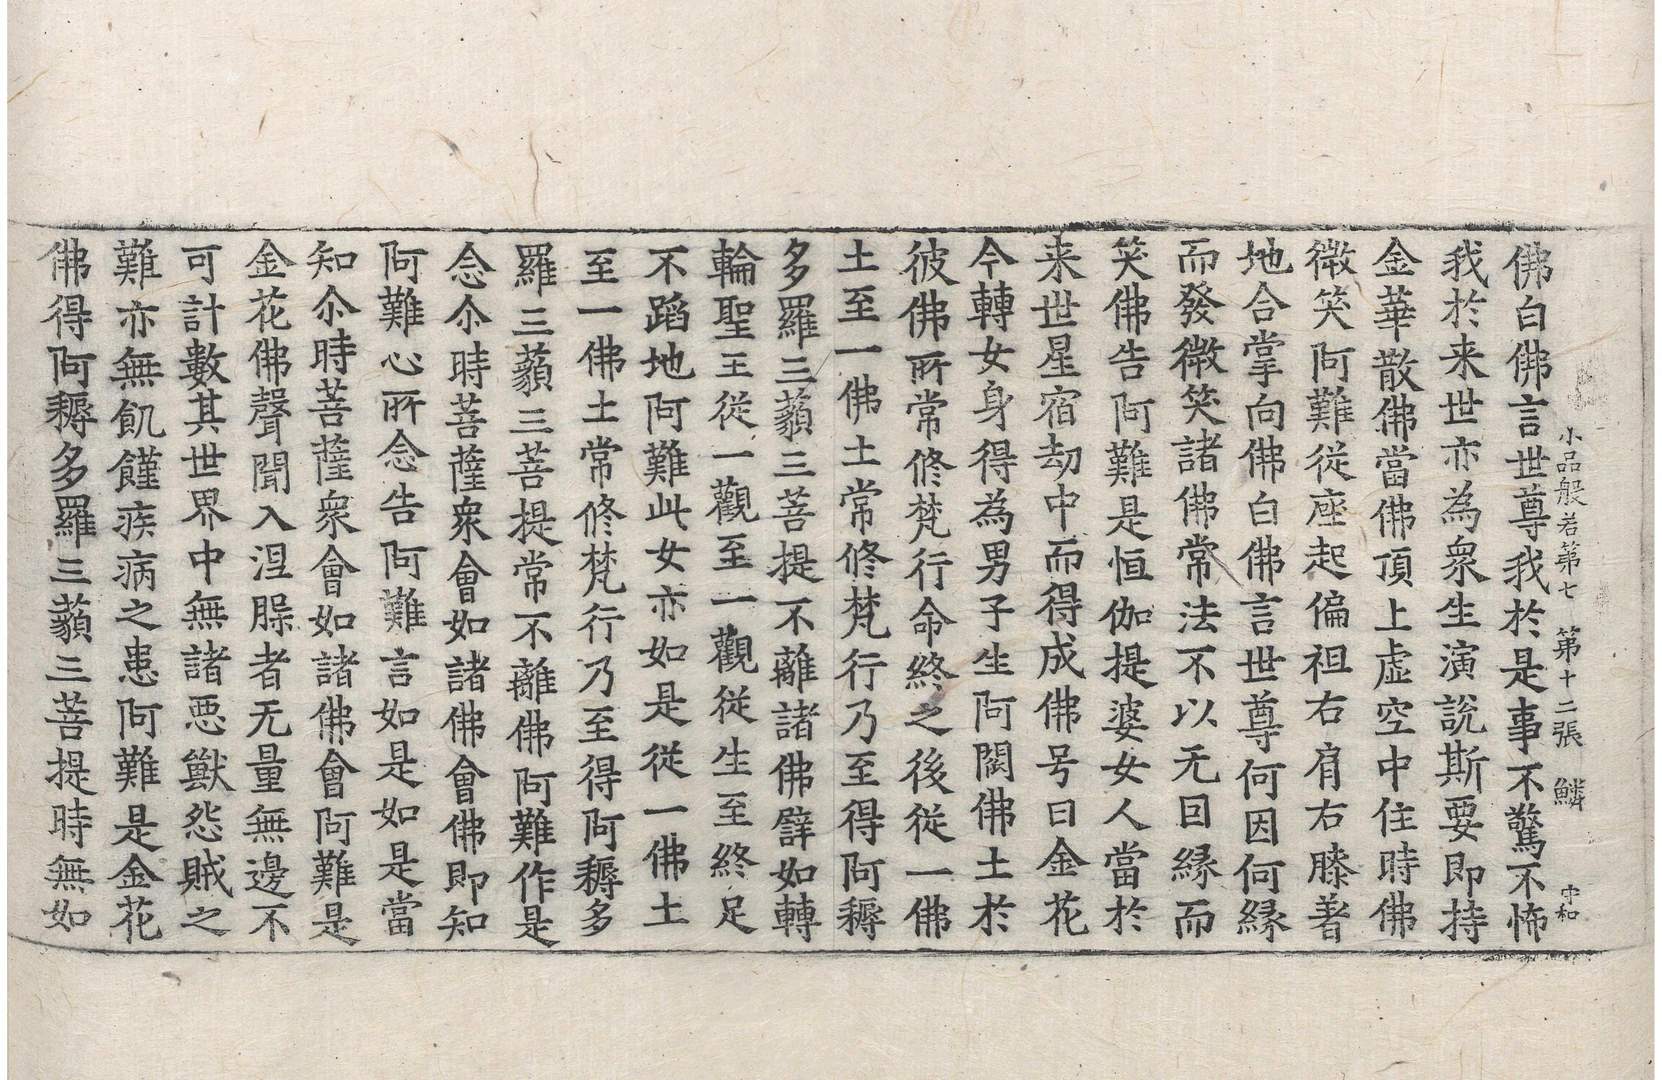 小品般若第七 第十二張 鱗 中和
佛白佛言世尊我於是事不驚不怖
我於来世亦為衆生演說斯要即持
金華散佛當佛頂上虛空中住時佛
微笑阿難從座起偏袒右肩右膝著
地合掌向佛白佛言世尊何因何縁
而發微笑諸佛常法不以无因縁而
笑佛告阿難是恒伽提婆女人當於
来世星宿劫中而得成佛号曰金花
今轉女身得為男子生阿閦佛土於
彼佛所常修梵行命終之後從一佛
土至一佛土常修梵行乃至得阿耨
多羅三藐三菩提不離諸佛譬如轉
輪聖王從一觀至一觀從生至終足
不蹈地阿難此女亦如是從一佛土
至一佛土常修梵行乃至得阿耨多
羅三藐三菩提常不離佛阿難作是
念尒時菩薩衆會如諸佛會佛即知
阿難心所念告阿難言如是如是當
知尒時菩薩衆會如諸佛會阿難是
金花佛聲聞入涅槃者无量無邊不
可計數其世界中無諸悪獸怨賊之
難亦無飢饉疾病之患阿難是金花
佛得阿耨多羅三藐三菩提時無如